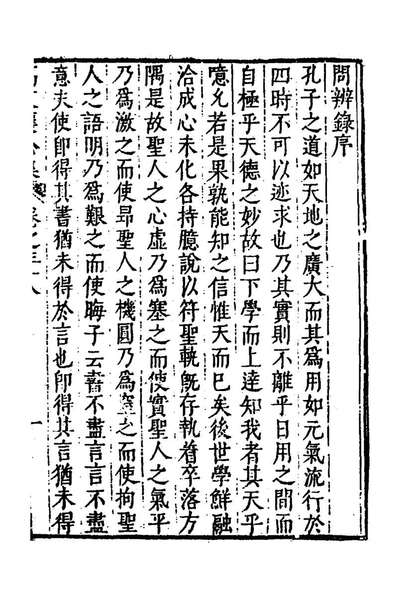 問辨錄序
孔子之道如天地之廣大而其爲用如元氣流行於
四時不可以迹求也乃其實則不離乎日用之間而
自極乎天德之妙故曰下學而上達知我者其天乎
噫允若是果孰能知之信惟天而已矣後世學鮮融
洽成心未化各持臆說以符聖軌旣存執着卒落方
隅是故聖人之心虛乃爲塞之而使實聖人之氣平
乃爲激之而使昂聖人之機圓乃爲之而使拘聖
人之語明乃爲艱之而使晦子云書不盡言言不盡
意夫使卽得其書猶未得於言也卽得其言猶未得
高文襄公集 卷之三十八 一